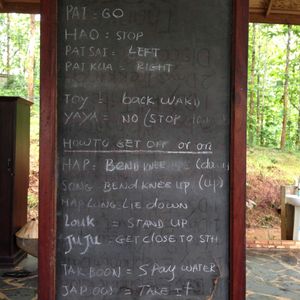 PAI : GO
HAO : STOP
PAI SAI : LEFT
PAI KUA : RIGHT
TOY : back WAKD
YAYA = NO (STOP
HOW TO GET OFF or on
HAP : BEND KNEE (down)
SONG BEND KNEE UP (UP)
MAP LUNG LIE DOWN
LOUK = STAND UP
JUJU : GET CLOSE TO STH
TAK BOON = SPAY WATER
JAP BON = TAKE IT